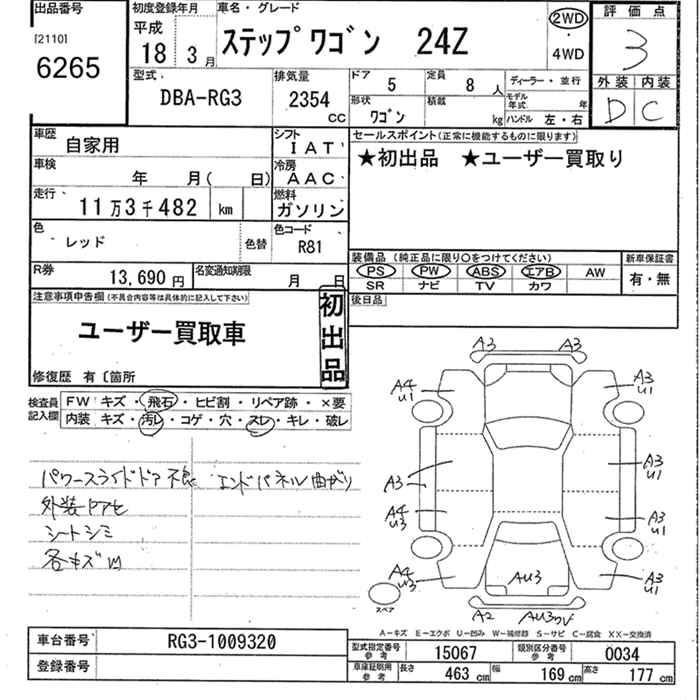 出品番号
[2110]
6265
初度登録年月
平成
18年 3月
車名・グレード
ステップワゴン 24Z
2WD
・
4WD
評価点
3
外装 内装
D C
型式
DBA-RG3
排気量
2354
CC
ドア
5
定員
8人
形状
ワゴン
積載
kg
ディーラー・並行
モデル年式 年
ハンドル 左・右
車歴
自家用
シフト
IAT
車検
年 月( 日)
冷房
AAC
走行
11万3千482 km
燃料
ガソリン
色
レッド
色替
色コード
R81
R券
13,690円
名変通知期限
月 日
セールスポイント(正常に機能するものに限ります)
★初出品 ★ユーザー買取り
装備品 (純正品に限り○をつけてください)
PS PW ABS エアB AW
SR ナビ TV カワ
新車保証書
有・無
後日品
注意事項申告欄(不具合内容等は具体的に記入して下さい)
ユーザー買取車
初出品
修復歴 有〔箇所
検査員記入欄
FW キズ・飛石・ヒビ割・リペア跡・×要
内装 キズ・汚レ・コゲ・穴・スレ・キレ・破レ
パワースライドドア不良 エンドパネル曲がり
外装
シートシミ
各キズ凹
A3 A3
A4
U1
A3
U1
A3
A3
U1
A4
U3
A3
U1
A4
U3
A3
U1
AU3
スペア
A2
A-キズ E-エクボ U-凹み W-補修跡 S-サビ C-腐食 XX-交換済
車台番号
RG3-1009320
登録番号
型式指定番号
参考
15067
類別区分番号
参考
0034
車庫証明用
参考
長さ
463 cm
幅
169 cm
高さ
177 cm